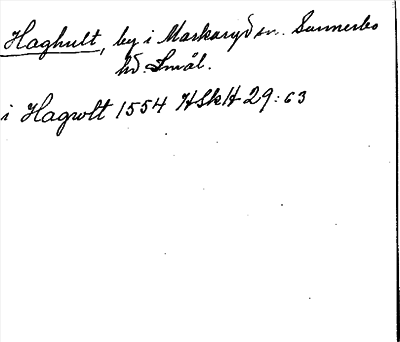 Haghult, by i Markaryd sn. Sunnerbo
hd. Smål.
i Hagwlt 1554 HSkH 29:63